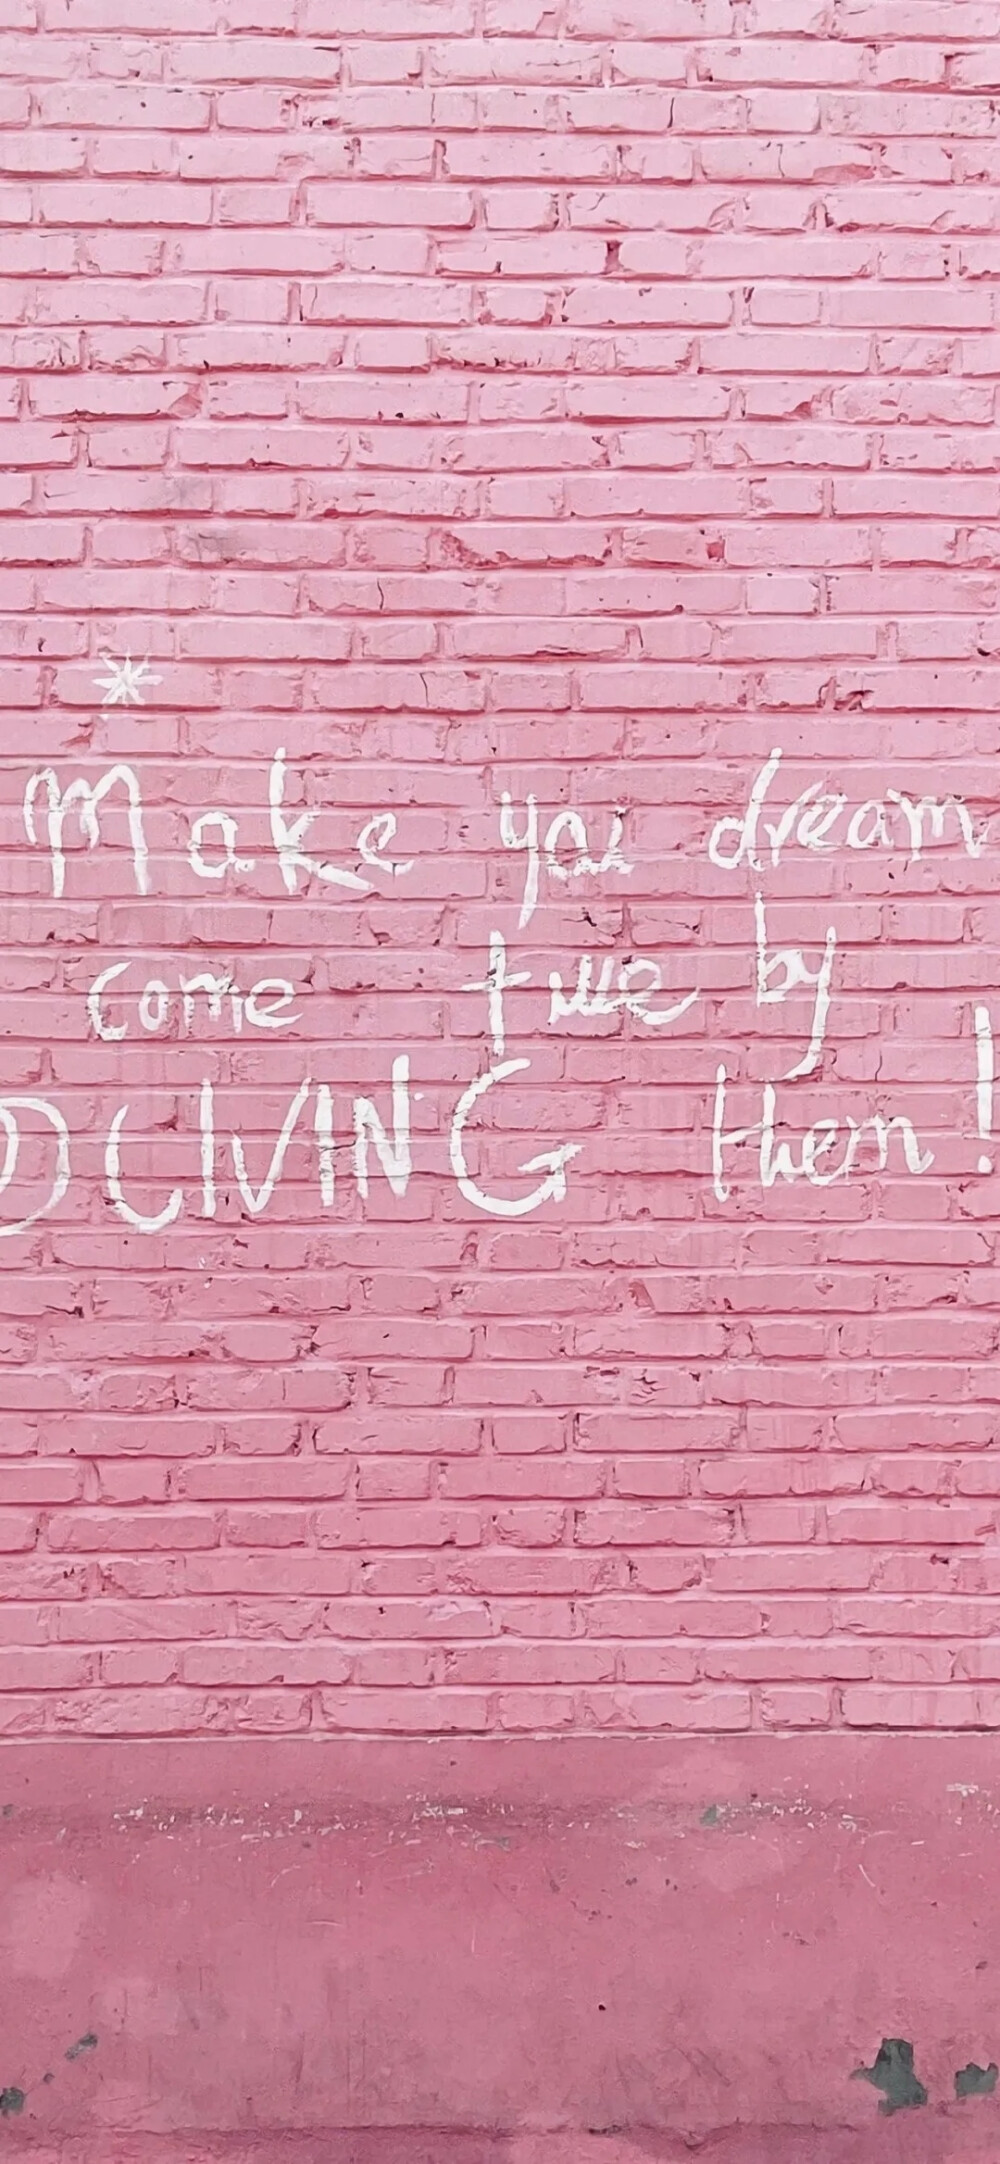 Make you dream
come true by
D LIVING them!